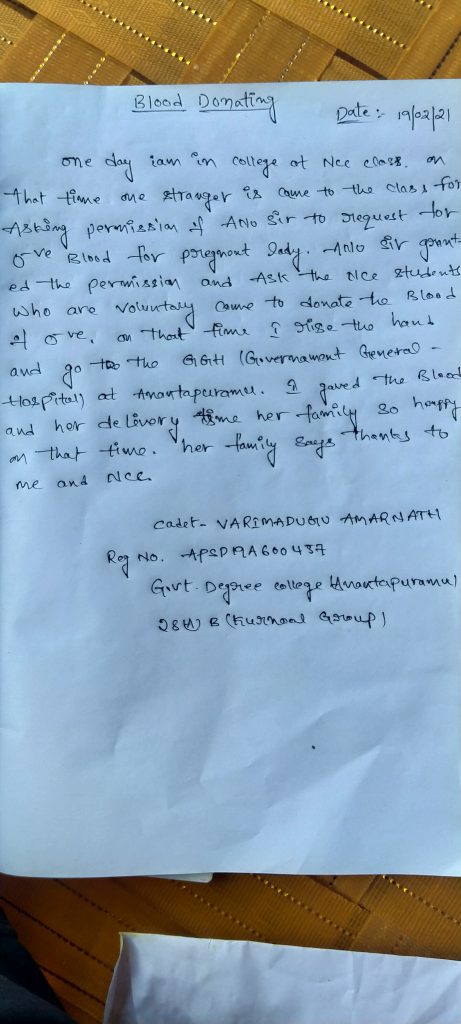 Blood Donating
Date :- 19/02/21
one day iam in college at Ncc class. on
That time one stranger is came to the class for
Asking permission of ANO Sir to request for
o -ve Blood for pregnent lady. ANO Sir grant-
ed the permission and Ask the Ncc students
who are voluntary came to donate the Blood
of o -ve. on that time I rise the hand
and go to the GGH (Governament General -
Hospital) at Anantapuramu. I gaved the Blood
and her delivery time her family so happy
on that time. her family says thanks to
me and Ncc.
Cadet - VARIMADUGU AMARNATH
Reg No. APSDMA600437
Govt. Degree college (Anantapuramu)
28(A) B (Kurnool Group)